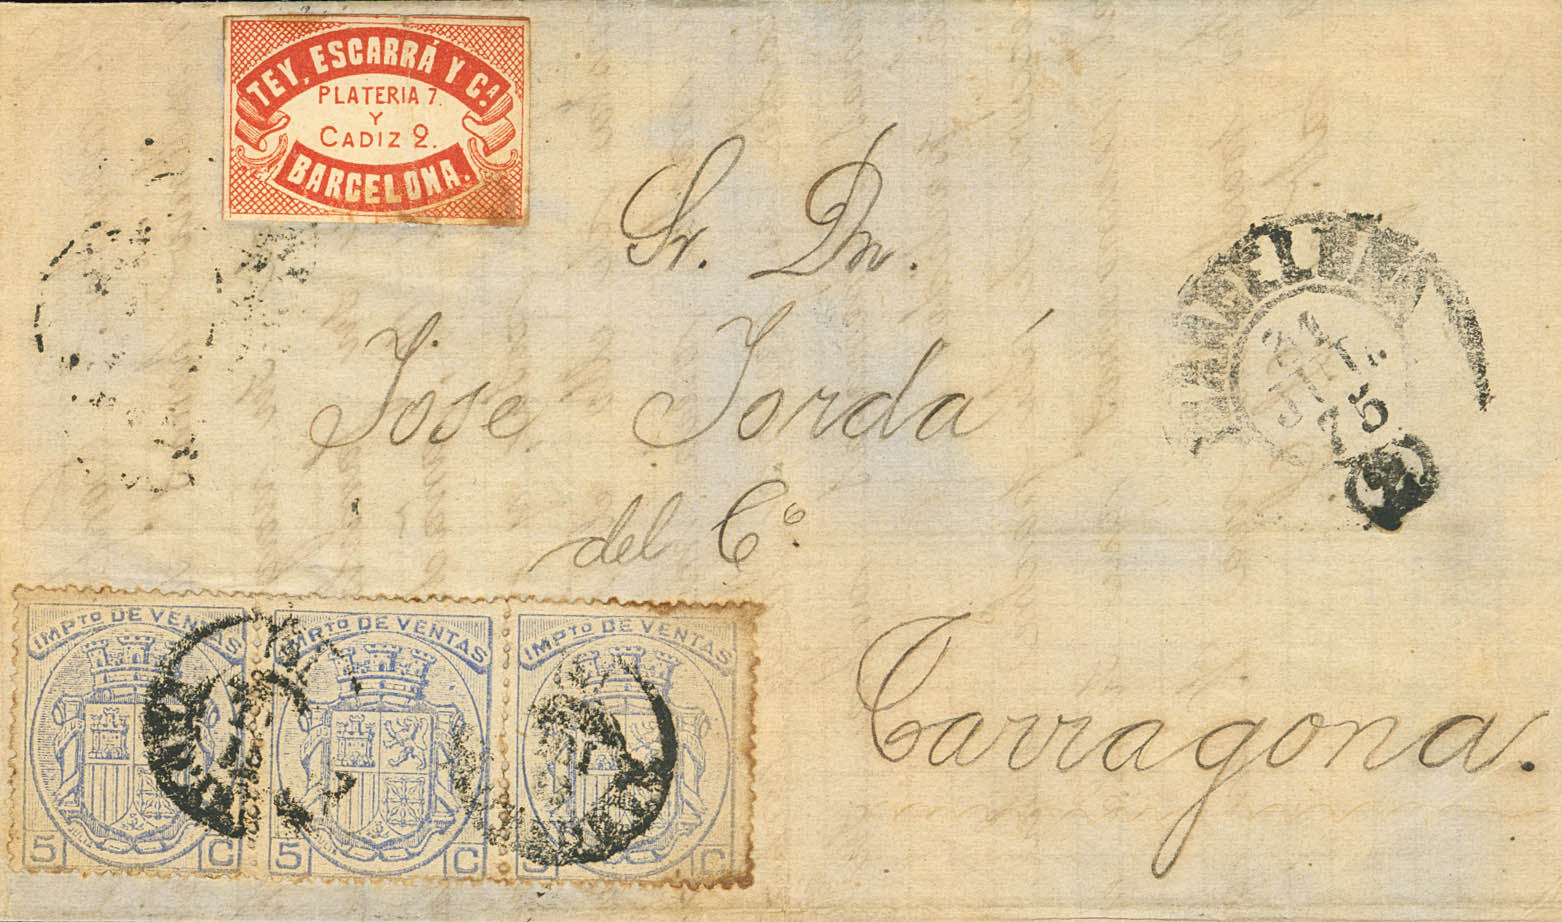 TEY, ESCARRÁ Y Cª.
PLATERIA 7.
Y
CADIZ 2.
BARCELONA.
Sr. Dn.
José Jordá
del Cº.
Tarragona.
21
JUL.
75
IMPTO DE VENTAS
5 C
IMPTO DE VENTAS
5 C
IMPTO DE VENTAS
5 C